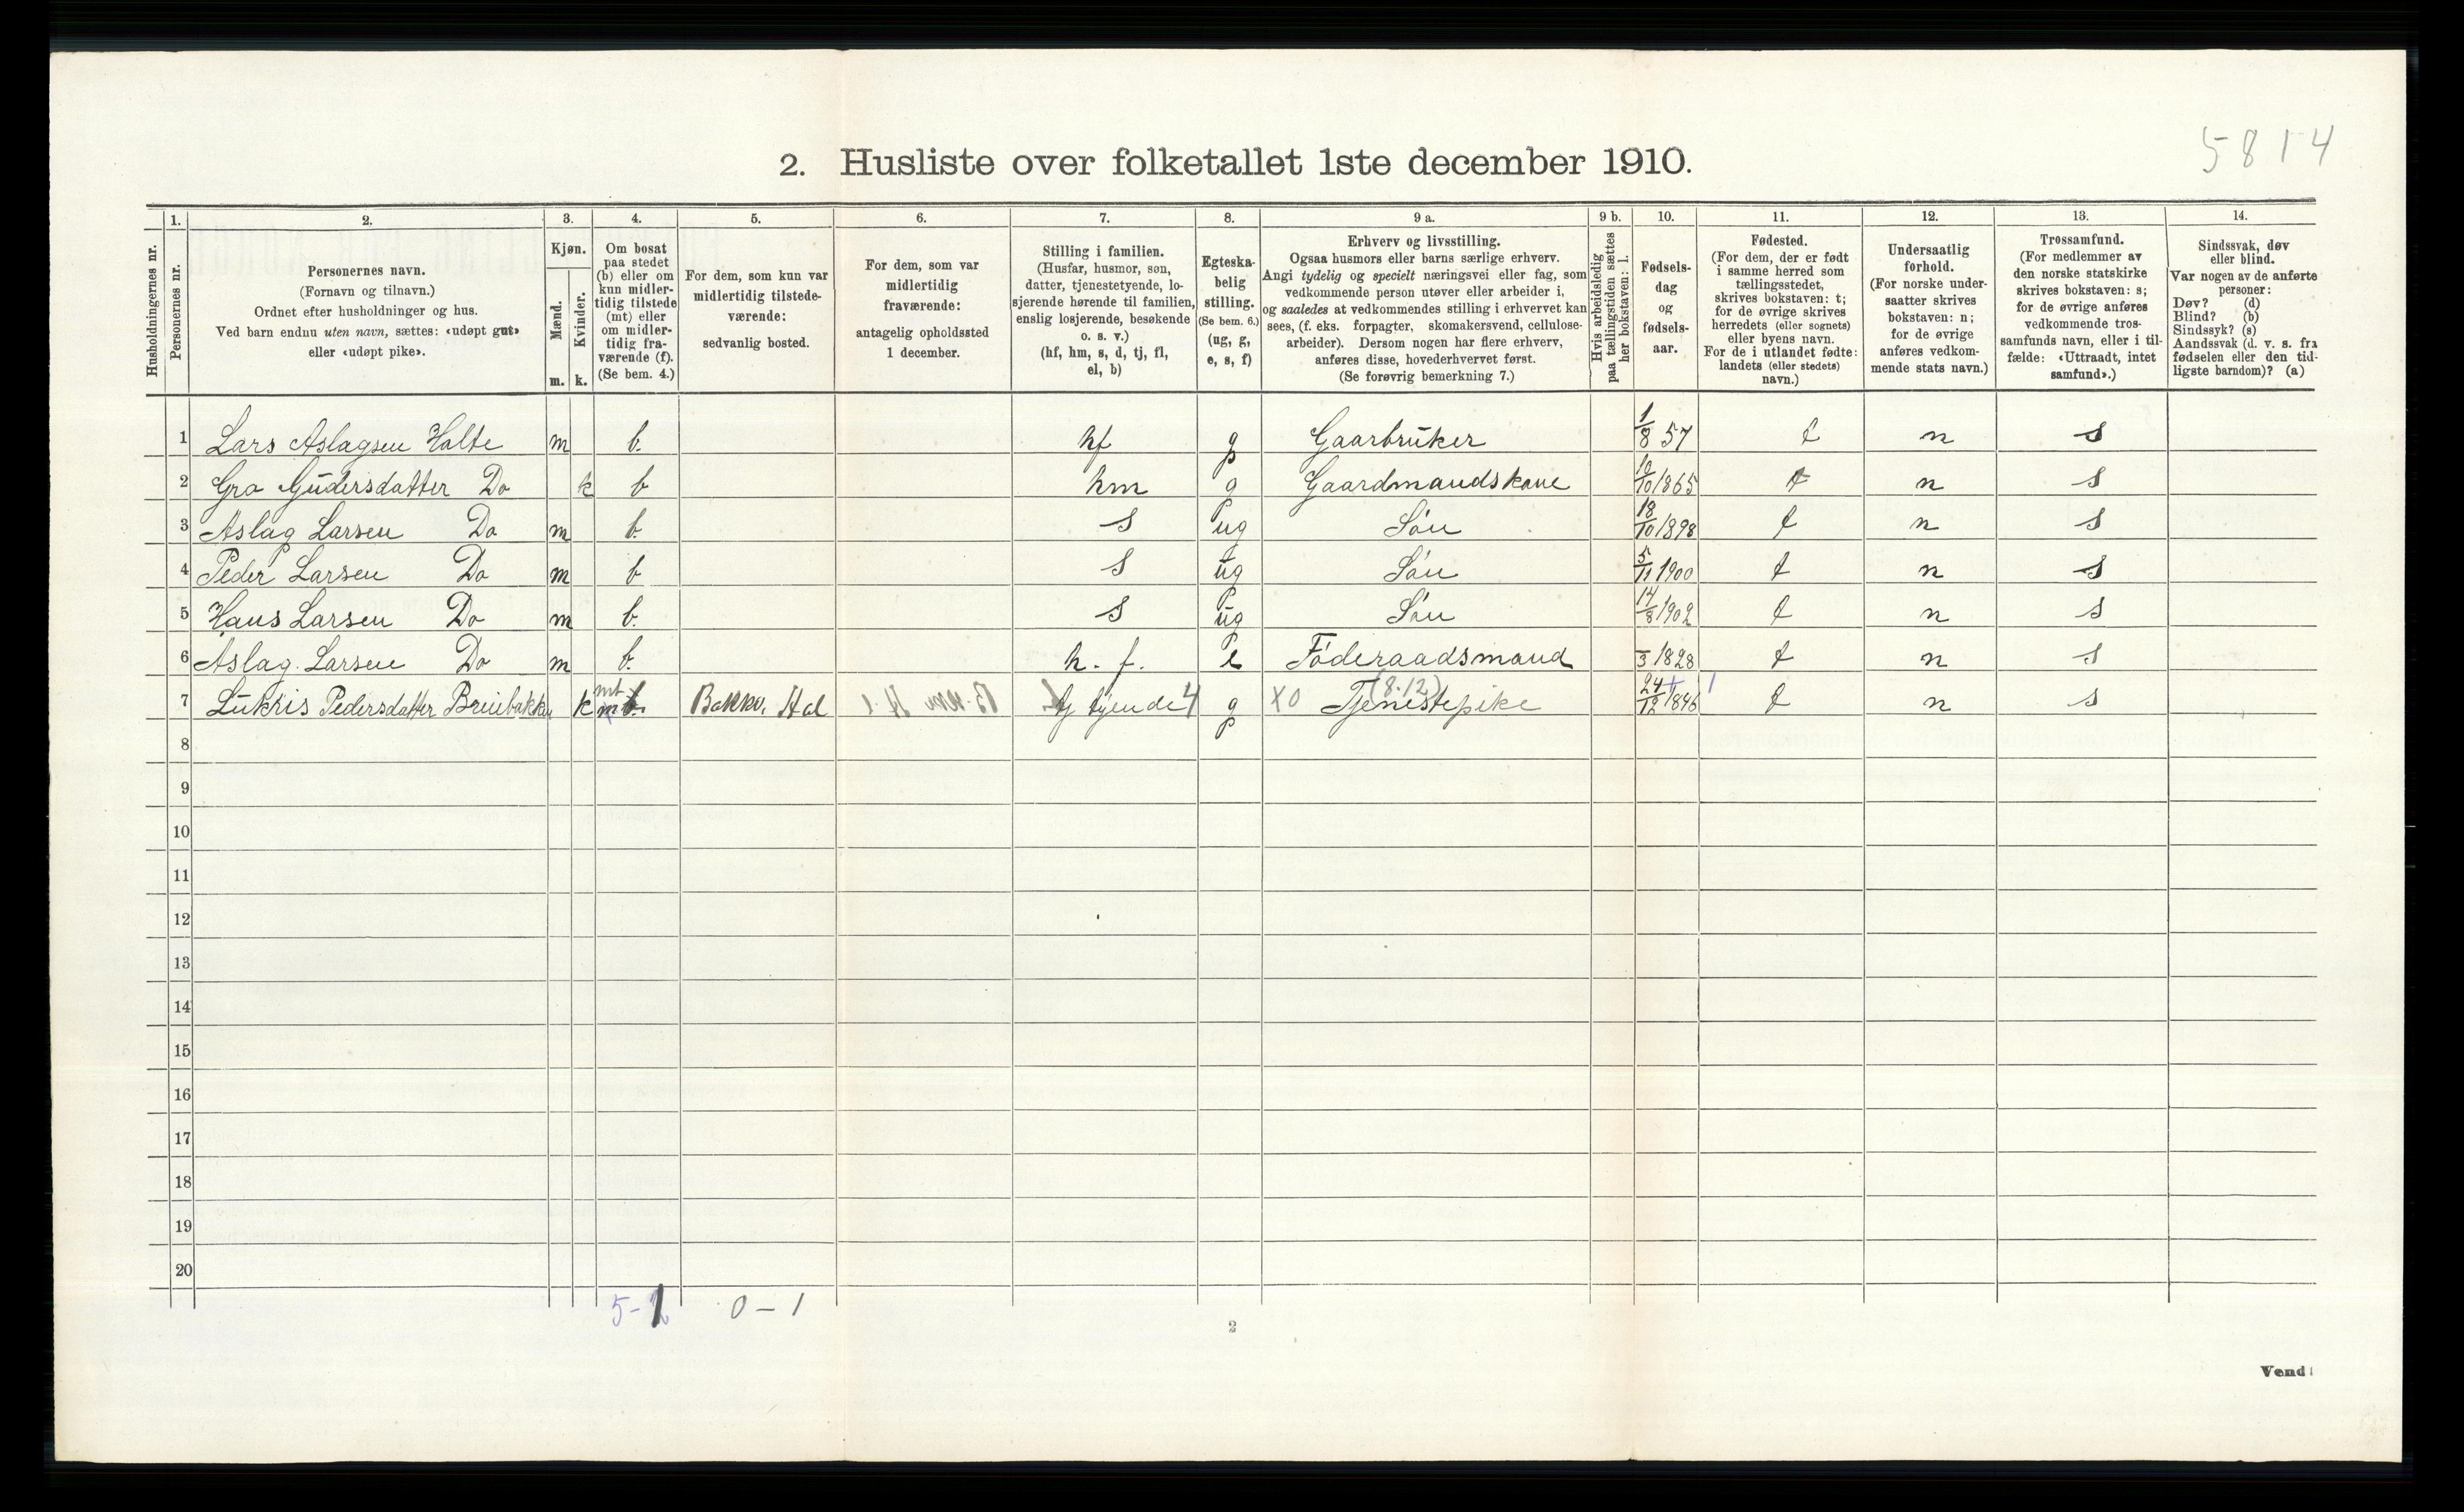 5814
2. Husliste over folketallet 1ste december 1910.
Husholdningernes nr.
1.
Personernes nr.
2.
Personernes navn.
(Fornavn og tilnavn.)
Ordnet efter husholdninger og hus.
Ved barn endnu uten navn, sættes: «udøpt gut»
eller «udøpt pike».
3.
Kjøn.
Mænd.
m.
Kvinder.
k.
4.
Om bosat
paa stedet
(b) eller om
kun midler-
tidig tilstede
(mt) eller
om midler-
tidig fra-
værende (f).
(Se bem. 4.)
5.
For dem, som kun var
midlertidig tilstede-
værende:
sedvanlig bosted.
6.
For dem, som var
midlertidig
fraværende:
antagelig opholdssted
1 december.
7.
Stilling i familien.
(Husfar, husmor, søn,
datter, tjenestetyende, lo-
sjerende hørende til familien,
enslig losjerende, besøkende
o. s. v.)
(hf, hm, s, d, tj, fl,
el, b)
8.
Egteska-
belig
stilling.
(Se bem. 6.)
(ug, g,
e, s, f)
9 a.
Erhverv og livsstilling.
Ogsaa husmors eller barns særlige erhverv.
Angi tydelig og specielt næringsvei eller fag, som
vedkommende person utøver eller arbeider i,
og saaledes at vedkommendes stilling i erhvervet kan
sees, (f. eks. forpagter, skomakersvend, cellulose-
arbeider). Dersom nogen har flere erhverv,
anføres disse, hovederhvervet først.
(Se forøvrig bemerkning 7.)
9 b.
Hvis arbeidsledig
paa tællingstiden sættes
her bokstaven: l.
10.
Fødsels-
dag
og
fødsels-
aar.
11.
Fødested.
(For dem, der er født
i samme herred som
tællingsstedet,
skrives bokstaven: t;
for de øvrige skrives
herredets (eller sognets)
eller byens navn.
For de i utlandet fødte:
landets (eller stedets)
navn.)
12.
Undersaatlig
forhold.
(For norske under-
saatter skrives
bokstaven: n;
for de øvrige
anføres vedkom-
mende stats navn.)
13.
Trossamfund.
(For medlemmer av
den norske statskirke
skrives bokstaven: s;
for de øvrige anføres
vedkommende tros-
samfunds navn, eller i til-
fælde: «Uttraadt, intet
samfund».)
14.
Sindssvak, døv
eller blind.
Var nogen av de anførte
personer:
Døv? (d)
Blind? (b)
Sindssyk? (s)
Aandssvak (d. v. s. fra
fødselen eller den tid-
ligste barndom)? (a)
1 Lars Aslagsen Holte m b. hf g Gaarbruker 1/8 57 t n s
2 Gro Gudersdatter Do k b hm g Gaardmandskone 10/10 1865 t n s
3 Aslag Larsen Do m b. s ug Søn 18/10 1898 t n s
4 Peder Larsen Do m b s ug Søn 5/11 1900 t n s
5 Hans Larsen Do m b. s ug Søn 14/8 1902 t n s
6 Aslag Larsen Do m b. h. f. e Føderaadsmand 3 1828 t n s
7 Lukris Pedersdatter k mt Bakko, Hol tj tyende 4 g XO Tjenestepike (8.12) 24/12 1846 t n s
8
9
10
11
12
13
14
15
16
17
18
19
20
5-1 0-1
2
Vend!